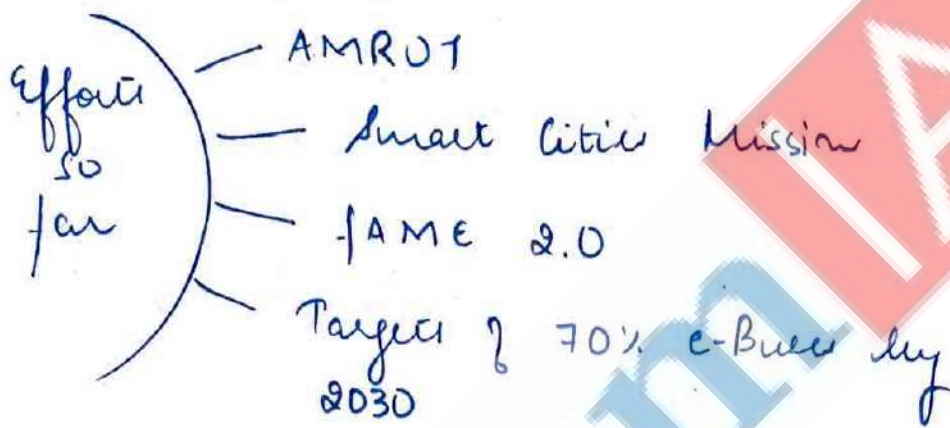 Efforts
so
far
AMRUT
Smart Cities Mission
FAME 2.0
Targets of 70% e-Buses by
2030